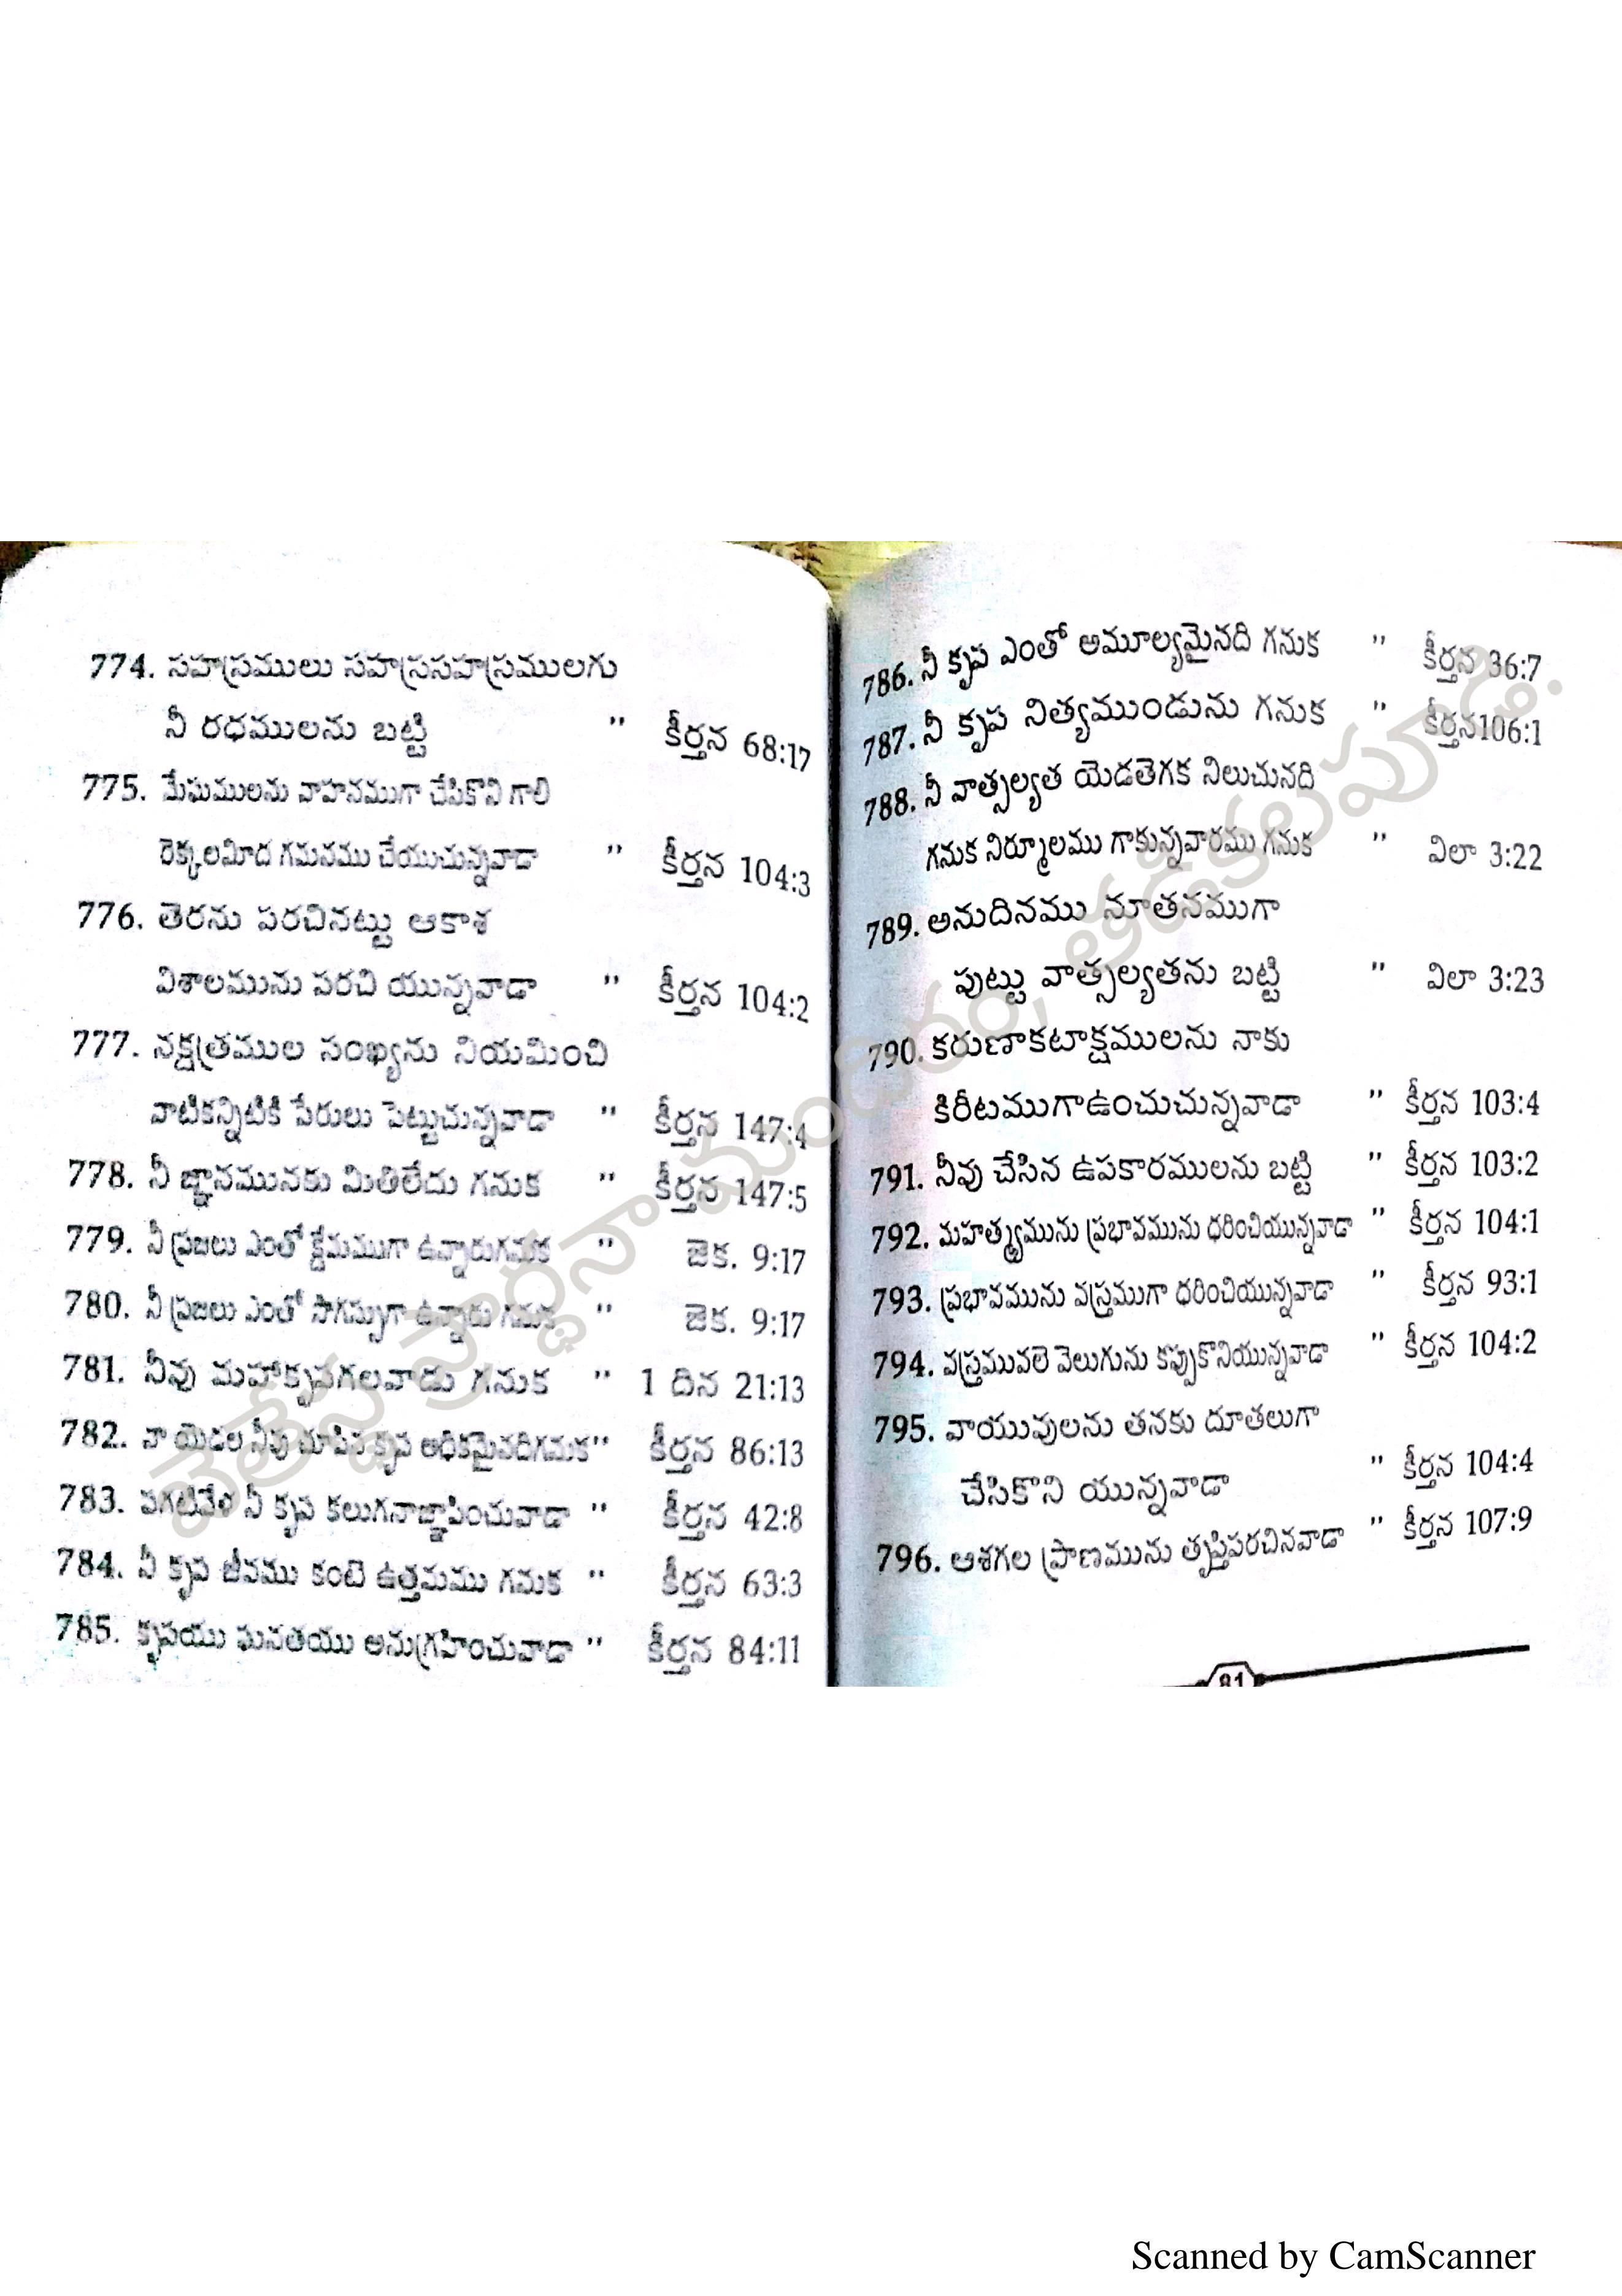 774. సహస్రములు సహస్రసహస్రములగు
నీ రధములను బట్టి " కీర్తన 68:17
775. మేఘములను వాహనముగా చేసికొని గాలి
రెక్కలమీద గమనము చేయుచున్నవాడా " కీర్తన 104:3
776. తెరను పరచినట్టు ఆకాశ
విశాలమును పరచి యున్నవాడా " కీర్తన 104:2
777. నక్షత్రముల సంఖ్యను నియమించి
వాటికన్నిటికి పేరులు పెట్టుచున్నవాడా " కీర్తన 147:4
778. నీ జ్ఞానమునకు మితిలేదు గనుక " కీర్తన 147:5
779. నీ ప్రజలు ఎంతో క్షేమముగా ఉన్నారుగనుక " జెక. 9:17
780. నీ ప్రజలు ఎంతో సొగస్సుగా ఉన్నారు గనుక " జెక. 9:17
781. నీవు మహాకృపగలవాడు గనుక " 1 దిన 21:13
782. నా యెడల నీవు చూపిన కృప అధికమైనదిగనుక" కీర్తన 86:13
783. పగటివేళ నీ కృప కలుగనాజ్ఞాపించువాడా " కీర్తన 42:8
784. నీ కృప జీవము కంటె ఉత్తమము గనుక " కీర్తన 63:3
785. కృపయు ఘనతయు అనుగ్రహించువాడా " కీర్తన 84:11
786. నీ కృప ఎంతో అమూల్యమైనది గనుక " కీర్తన 36:7
787. నీ కృప నిత్యముండును గనుక " కీర్తన106:1
788. నీ వాత్సల్యత యెడతెగక నిలుచునది
గనుక నిర్మూలము గాకున్నవారము గనుక " విలా 3:22
789. అనుదినము నూతనముగా
పుట్టు వాత్సల్యతను బట్టి " విలా 3:23
790. కరుణాకటాక్షములను నాకు
కిరీటముగాఉంచుచున్నవాడా " కీర్తన 103:4
791. నీవు చేసిన ఉపకారములను బట్టి " కీర్తన 103:2
792. మహాత్మ్యమును ప్రభావమును ధరించియున్నవాడా " కీర్తన 104:1
793. ప్రభావమును వస్త్రముగా ధరించియున్నవాడా " కీర్తన 93:1
794. వస్త్రమువలె వెలుగును కప్పుకొనియున్నవాడా " కీర్తన 104:2
795. వాయువులను తనకు దూతలుగా
చేసికొని యున్నవాడా " కీర్తన 104:4
796. ఆశగల ప్రాణమును తృప్తిపరచినవాడా " కీర్తన 107:9
81
బేతేస్ద ప్రార్థనా మందిరం, తడికలపూడి.
Scanned by CamScanner